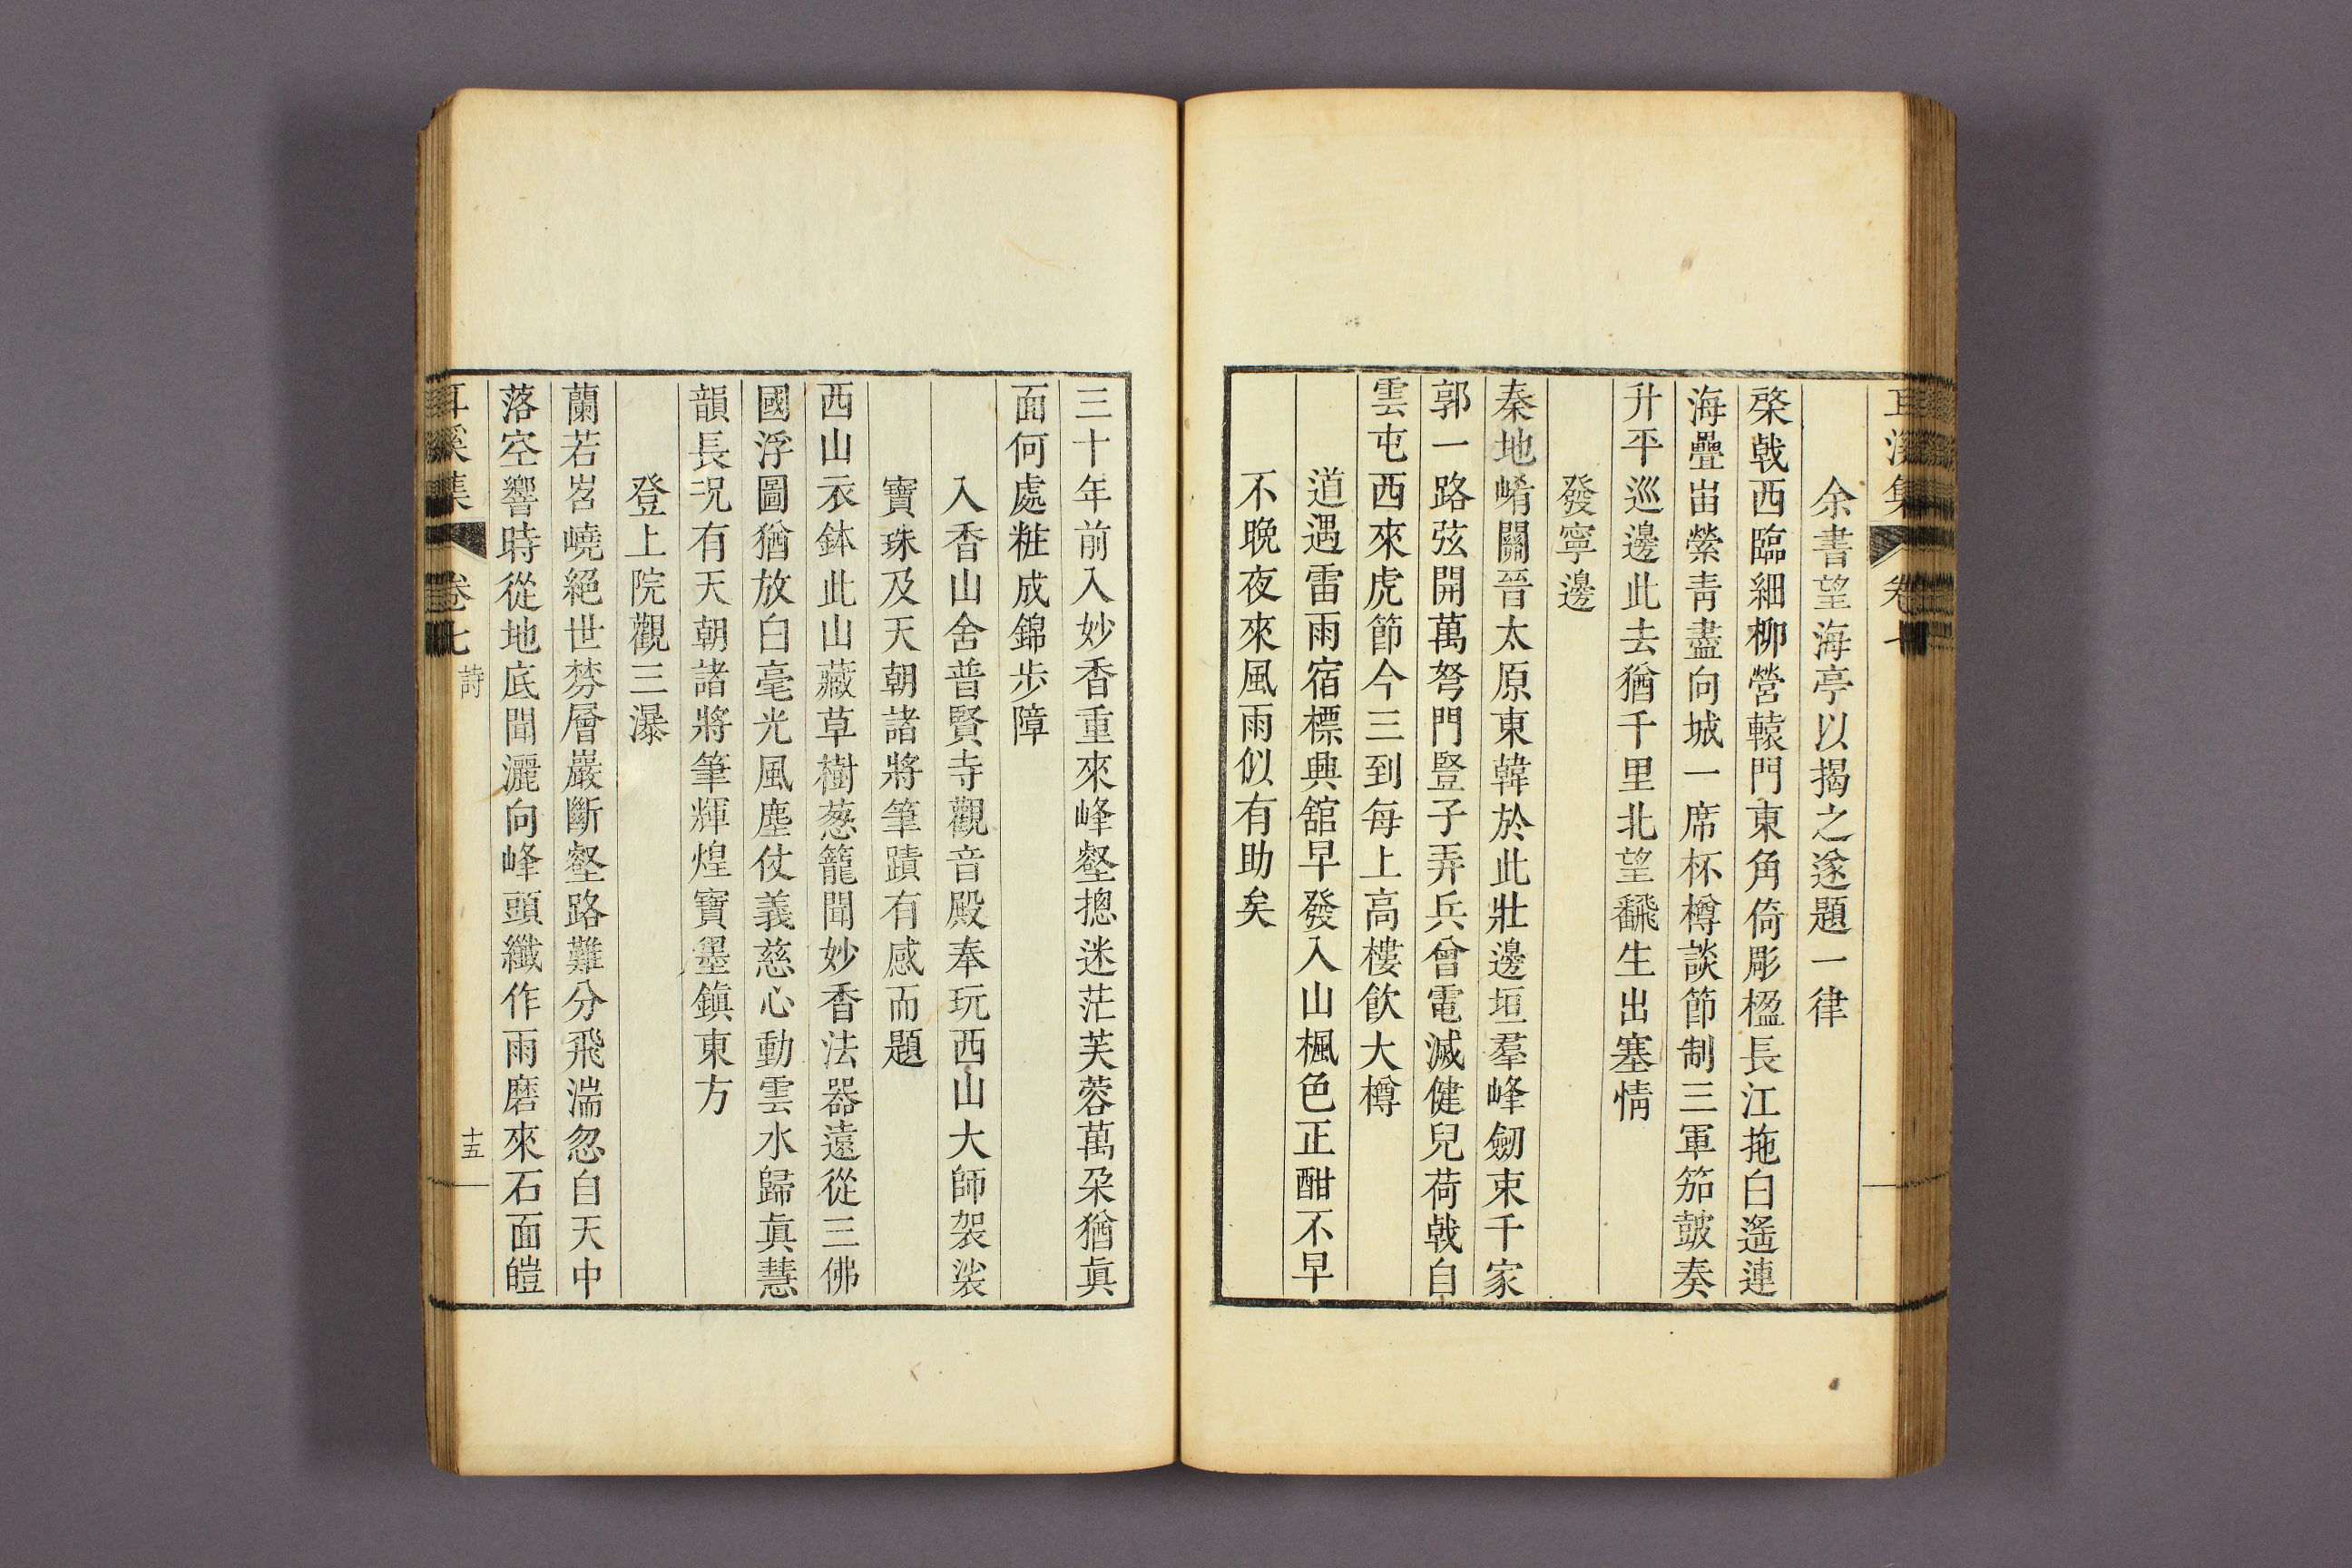 耳溪集 卷七
余書望海亭以揭之遂題一律
棨戟西臨細柳營轅門東角倚彫楹長江拖白遙連
海疊岀縈靑盡向城一席杯樽談節制三軍笳皷奏
升平巡邊此去猶千里北望飜生出塞情
發寧邊
秦地崤關晉太原東韓於此壯邊垣羣峰劒束千家
郭一路弦開萬弩門豎子弄兵曾電滅健兒荷戟自
雲屯西來虎節今三到每上高樓飮大樽
道遇雷雨宿標興舘早發入山楓色正酣不早
不晩夜來風雨似有助矣
三十年前入妙香重來峰壑摠迷茫芙蓉萬朶猶眞
面何處粧成錦步障
入香山舍普賢寺觀音殿奉玩西山大師袈裟
寶珠及天朝諸將筆蹟有感而題
西山衣鉢此山藏草樹葱籠聞妙香法器遠從三佛
國浮圖猶放白毫光風塵仗義慈心動雲水歸眞慧
韻長况有天朝諸將筆輝煌寶墨鎭東方
登上院觀三瀑
蘭若岧嶢絕世棼層巖斷壑路難分飛湍忽自天中
落空響時從地底聞灑向峰頭纖作雨磨來石面皚
耳溪集 卷七 詩 十五